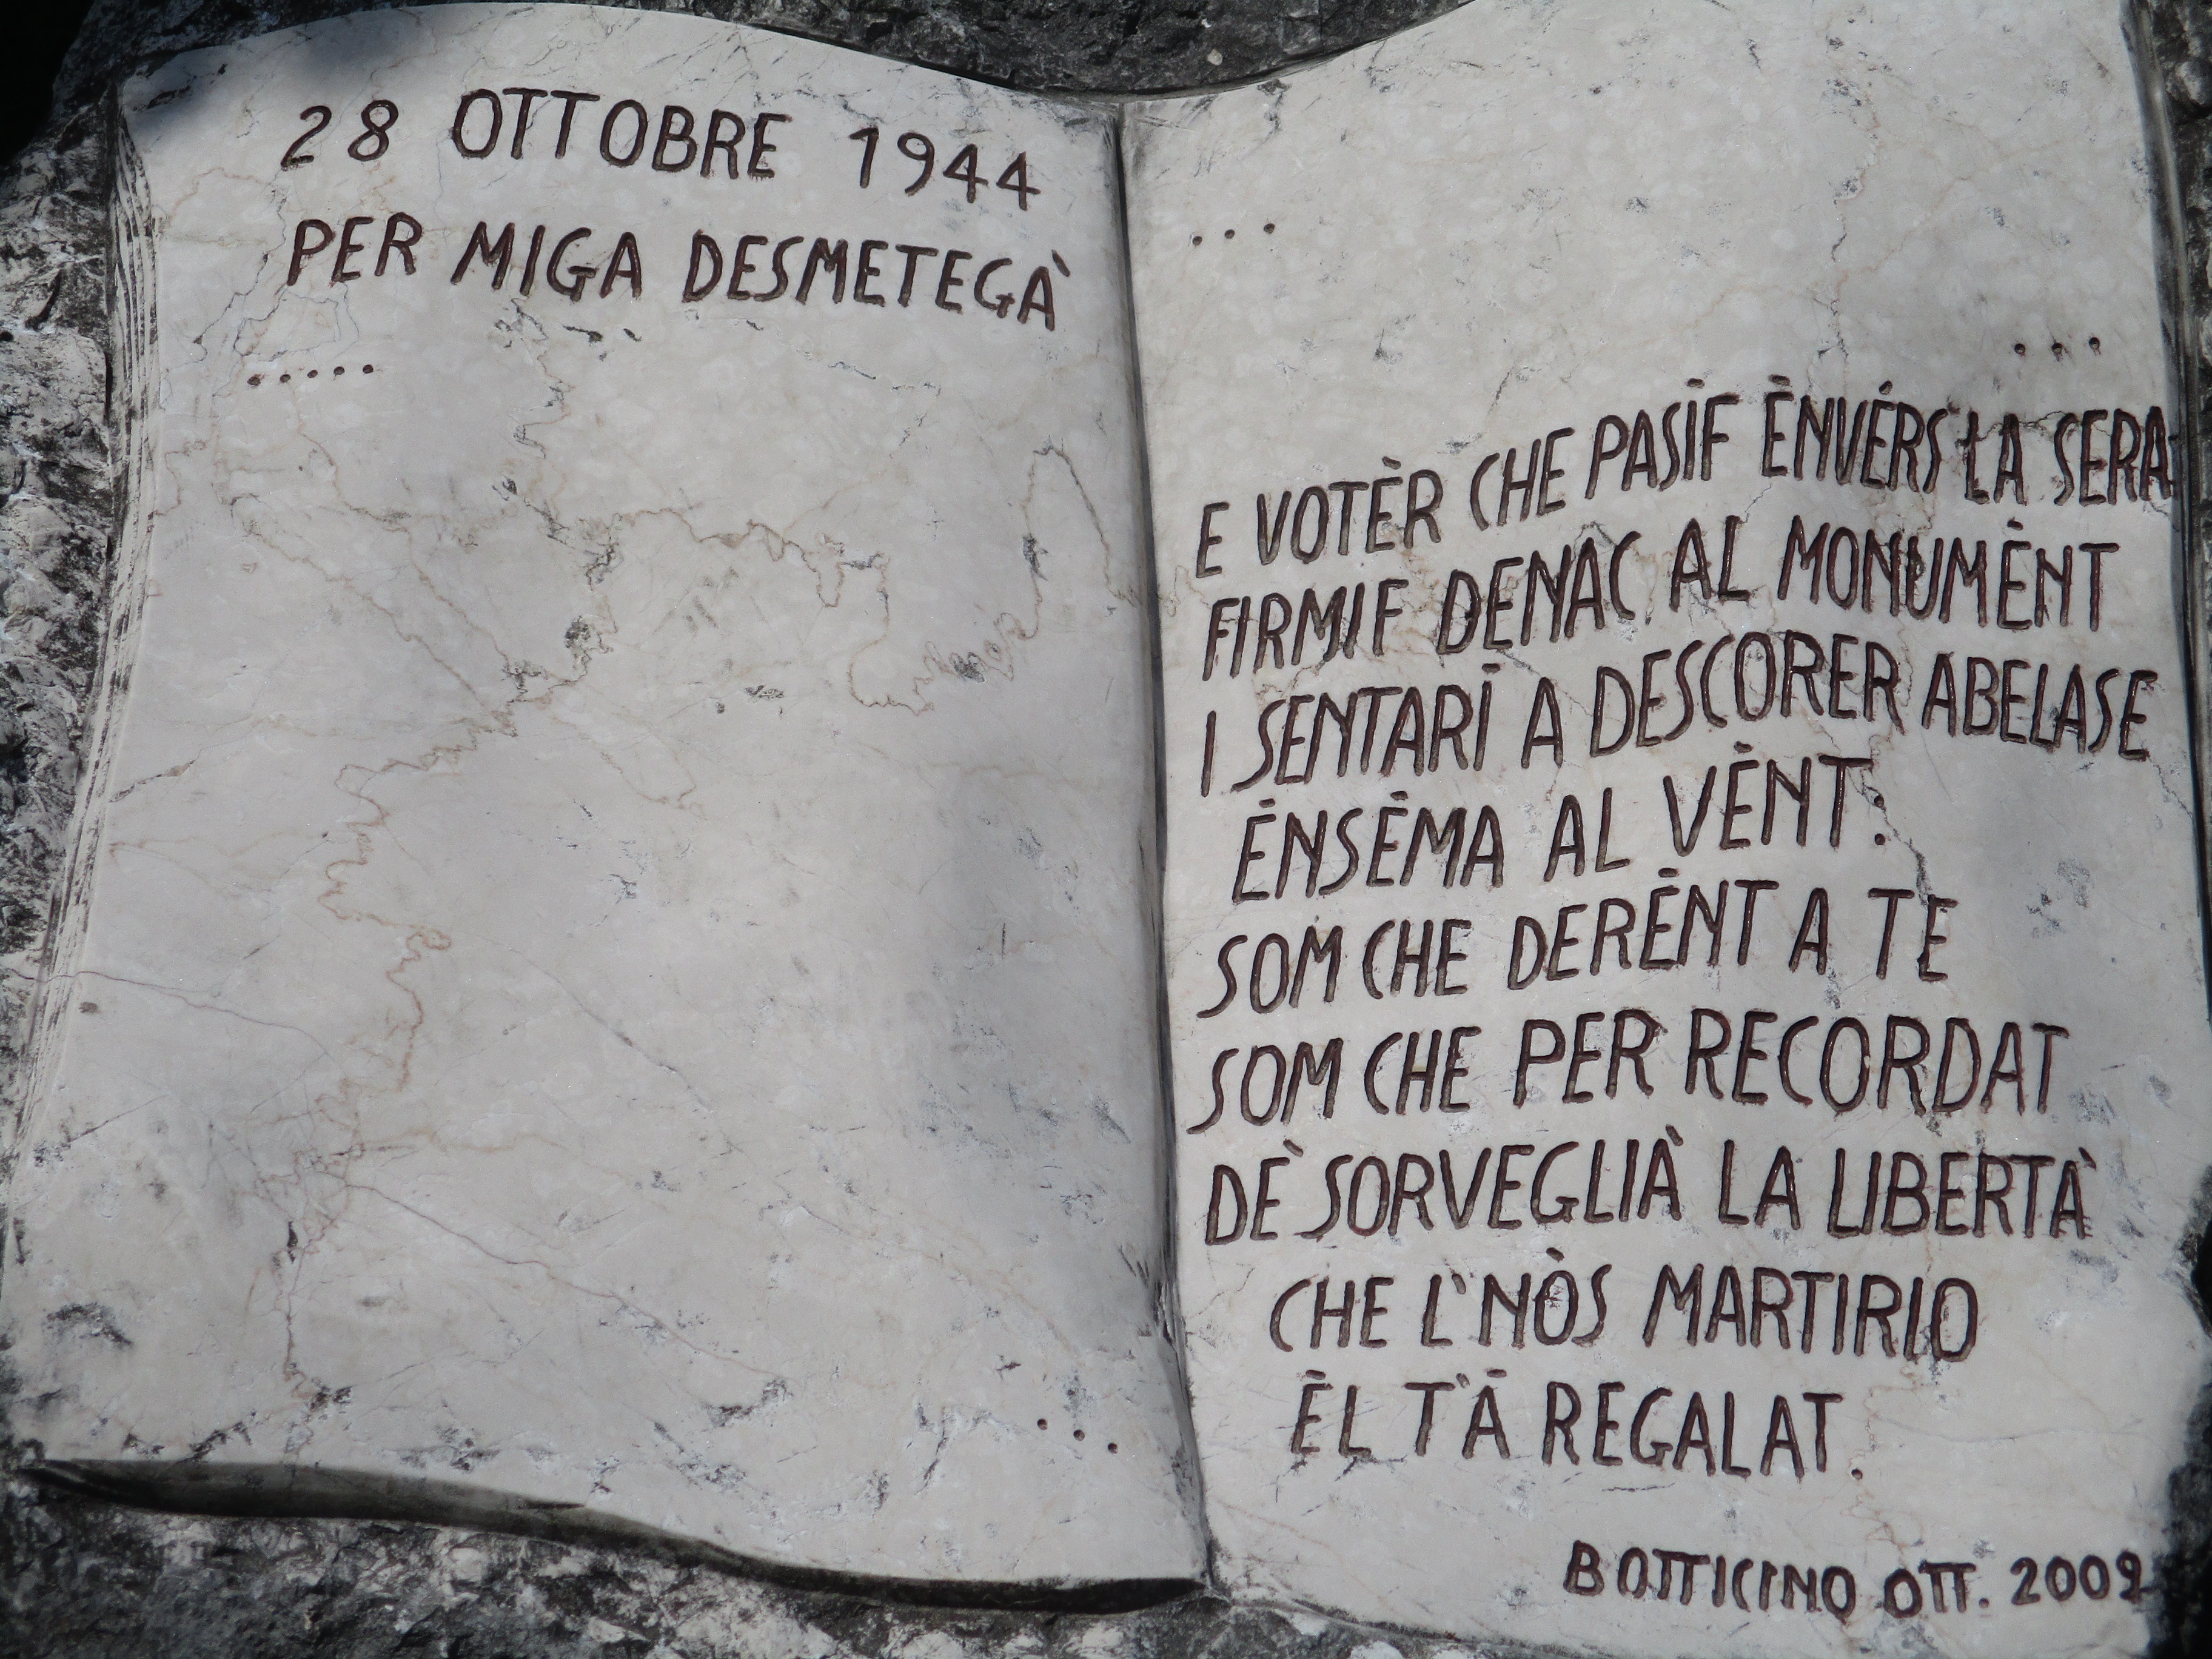 28 OTTOBRE 1944
PER MIGA DESMETEGÀ
.....
...
...
...
E VOTÈR CHE PASÌF ÈNVÉRS LA SERA
FIRMIF DENAC AL MONUMÈNT
I SENTARÌ A DESCORER ABELASE
ÈNSÈMA AL VÈNT:
SOM CHE DERÈNT A TE
SOM CHE PER RECORDAT
DÈ SORVEGLIÀ LA LIBERTÀ
CHE L'NÒS MARTIRIO
ÈL T'À REGALAT.
BOTTICINO OTT. 2009